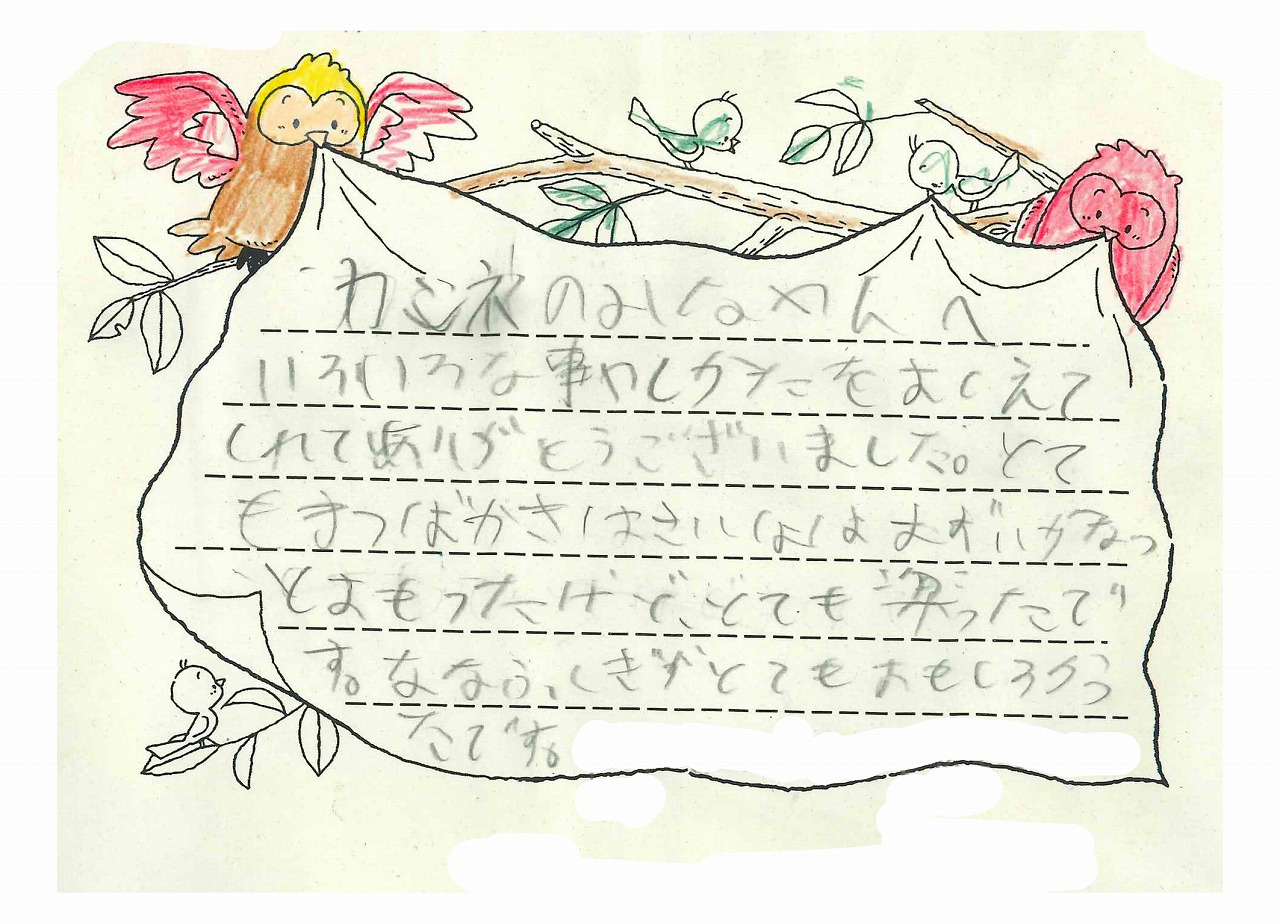 カシネのみなさんへ
いろいろな事やしかたをおしえて
くれてありがとうございました。とて
もまつばがきはさいしょは大
とおもうたけど、とても楽ったこで
す。ななふしぎがとてもおもしろかっ
たです。